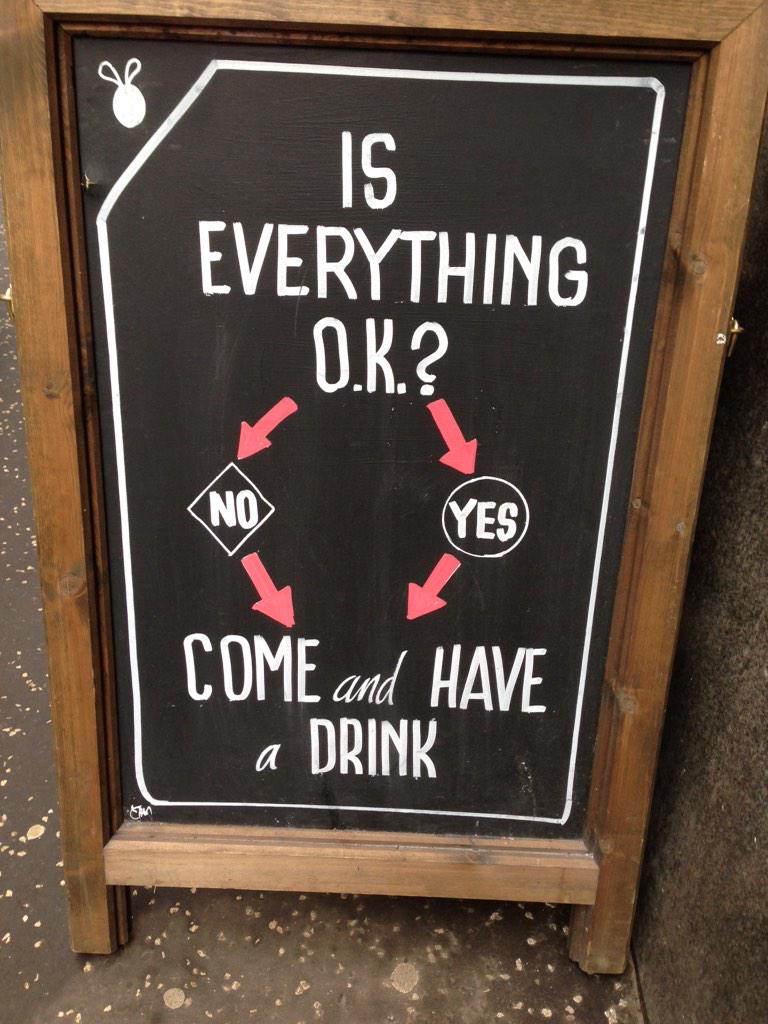 IS
EVERYTHING
O.K.?
NO YES
COME and HAVE
a DRINK